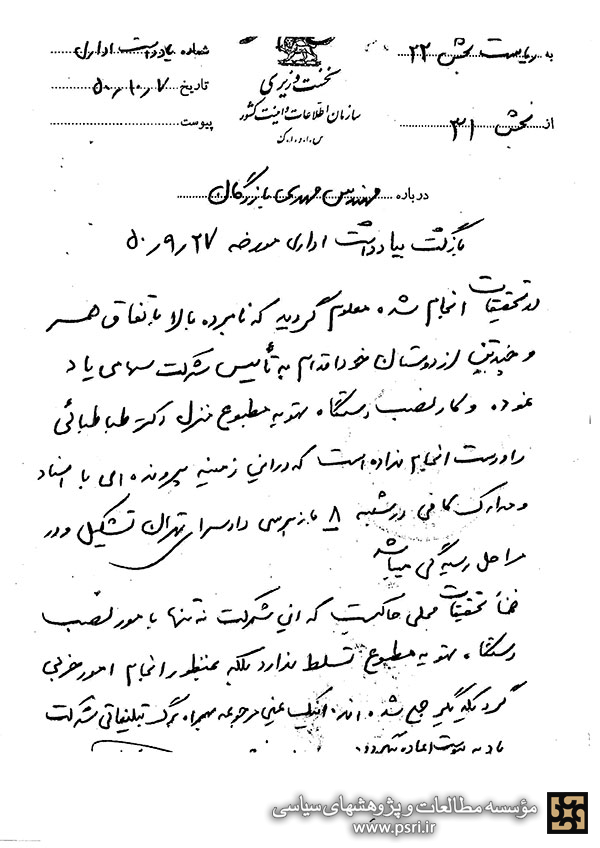 به ریاست بخش ۲۲
شماره یادداشت اداری
نخست وزیری
تاریخ ۵۰٫۱۰٫۷
سازمان اطلاعات و امنیت کشور
از بخش ۳۱
پیوست
س.ا.و.ا.ک
درباره مهندس مهدی بازرگان
بازگشت بیادداشت اداری مورخه ۵۰٫۹٫۲۷
در تحقیقات انجام شده معلوم گردید که نامبرده بالا باتفاق همسر
و چندتن از دوستان خود اقدام به تأسیس شرکت سهامی یاد
نموده و کار نصب دستگاه تهویه مطبوع منزل دکتر طباطبائی
را درست انجام نداده است که در این زمینه پرونده ای با اسناد
و مدارک کافی در شعبه ۸ بازپرسی دادسرای تهران تشکیل و در
مراحل رسیدگی میباشد
ضمناً تحقیقات محلی حاکیست که این شرکت نه تنها بامور نصب
دستگاه تهویه مطبوع تسلط ندارد بلکه بمنظور انجام امور حزبی
گرد یکدیگر جمع شده اند. اینک عین مرجوعه بهمراه برگ تبلیغاتی شرکت
یاد به پیوست اعاده میگردد.
مؤسسه مطالعات و پژوهشهای سیاسی
www.psri.ir